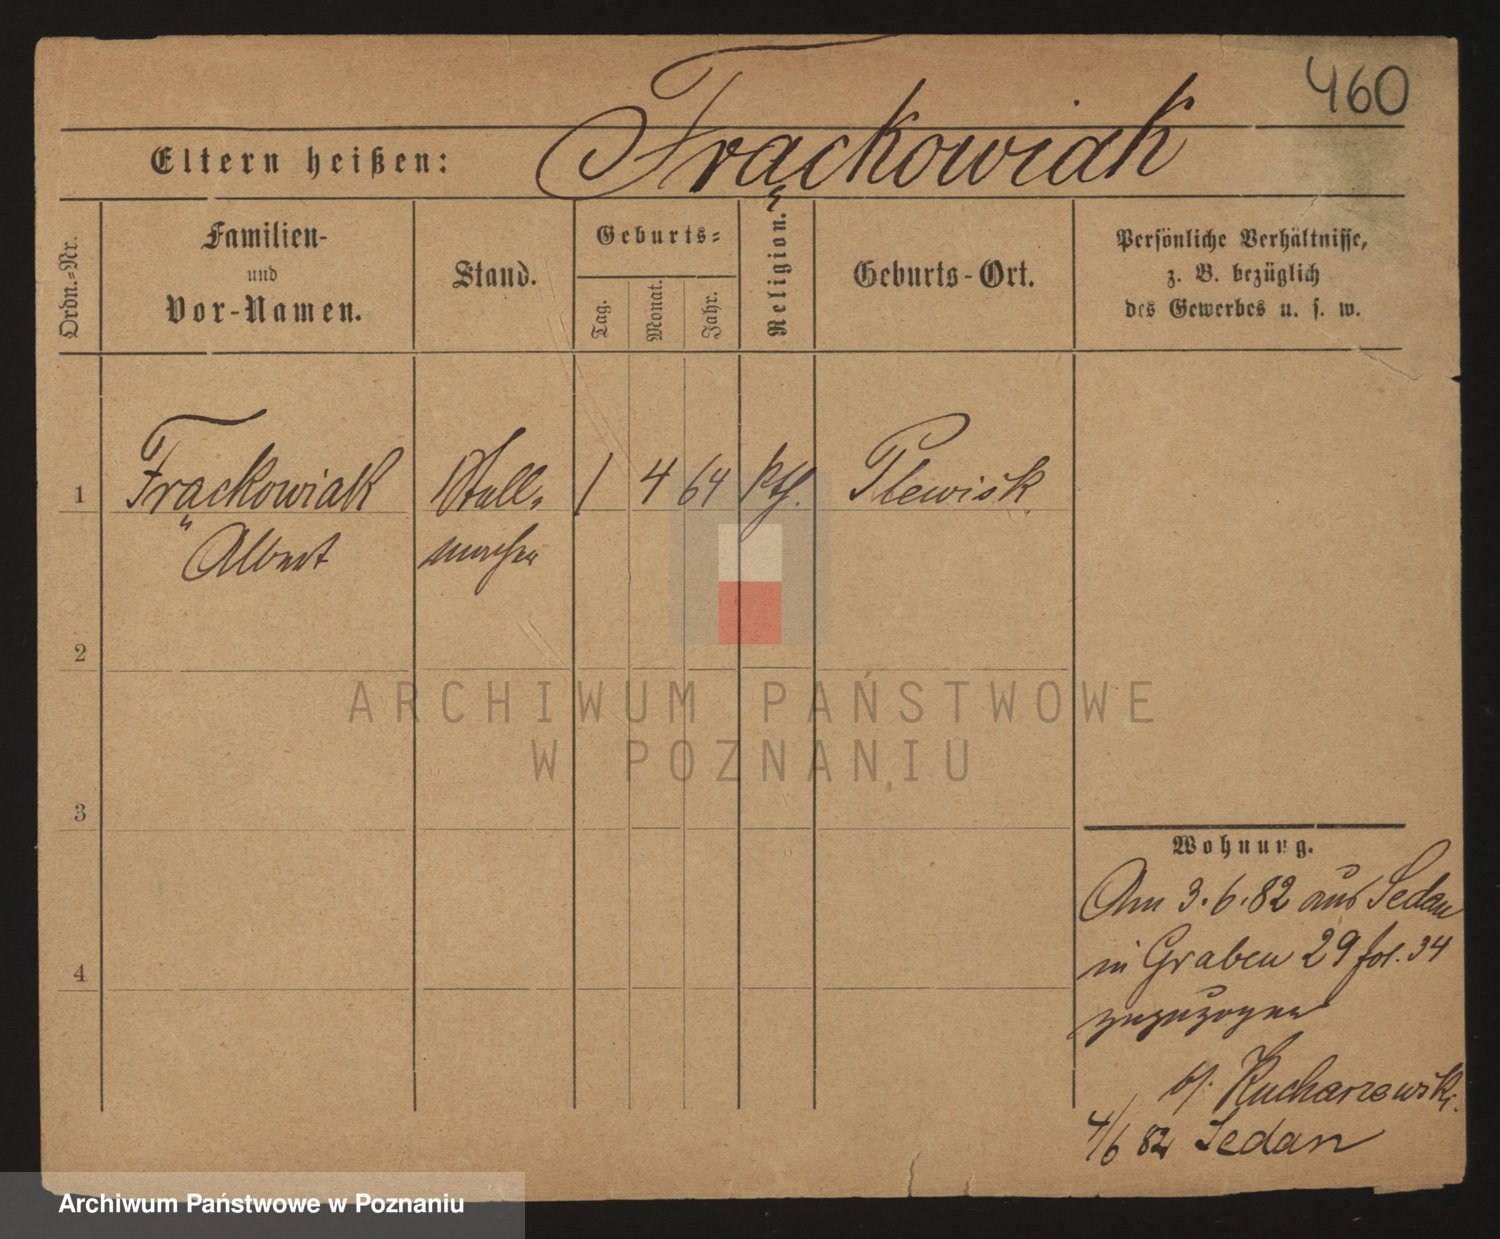 460
Frąckowiak
Eltern heißen:
Ordn.-Nr.
Familien-
und
Vor-Namen.
Stand.
Geburts-
Tag.
Monat.
Jahr.
Religion.
Geburts-Ort.
Persönliche Verhältnisse,
z. B. bezüglich
des Gewerbes u. s. w.
1 Frąckowiak Stell- 1 4 64 kth. Plewisk
Albert macher
2
3
4
ARCHIWUM PAŃSTWOWE
W POZNANIU
Wohnung.
Am 3.6.82 aus Sedan
in Graben 29 fol. 34
zugezogen
b/. Kucharzewski.
4/6 82 Sedan
Archiwum Państwowe w Poznaniu